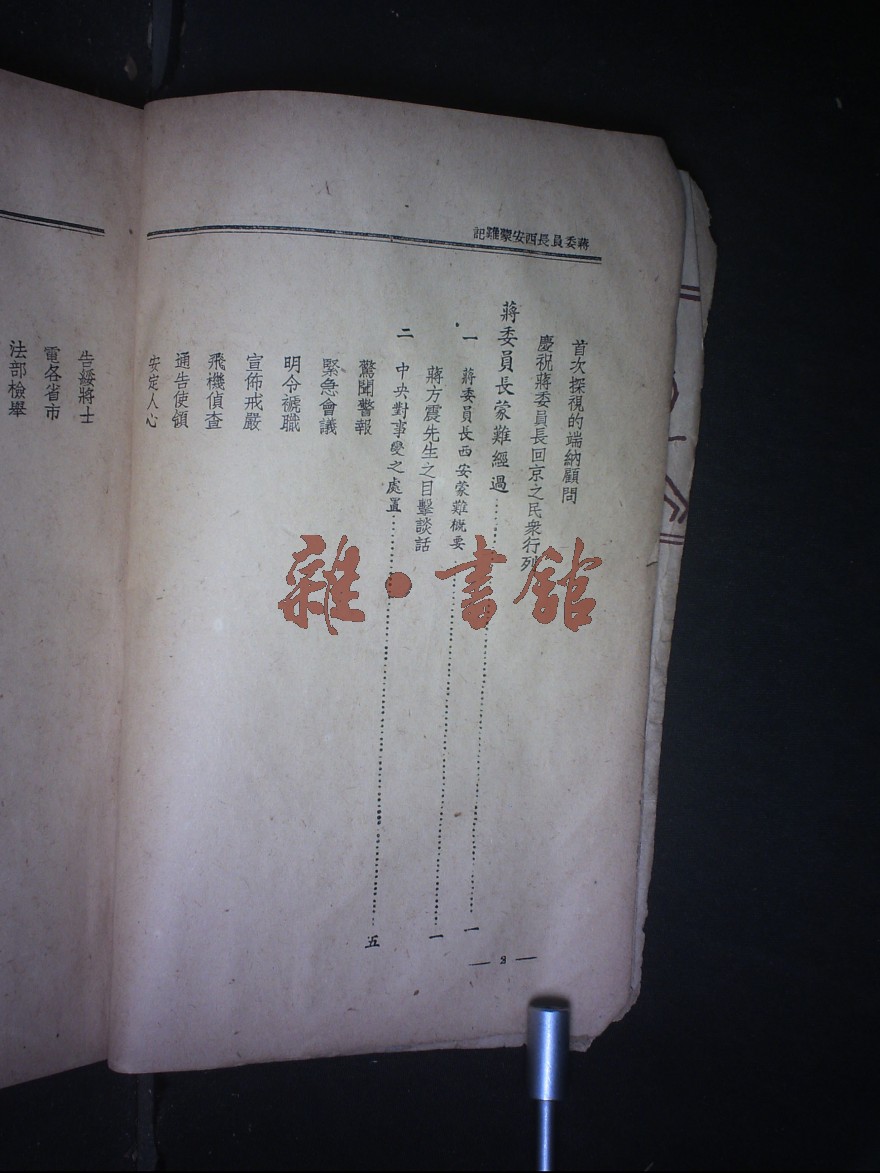 蔣委員長西安蒙難記
首次探視的端納顧問
慶祝蔣委員長回京之民衆行列
蔣委員長蒙難經過……一
一 蔣委員長西安蒙難概要……一
蔣方震先生之目擊談話
二 中央對事變之處置……五
驚聞警報
緊急會議
明令褫職
宣佈戒嚴
飛機偵查
通告使領
安定人心
— 2 —
告綏將士
電各省市
法部檢舉
雜·書館